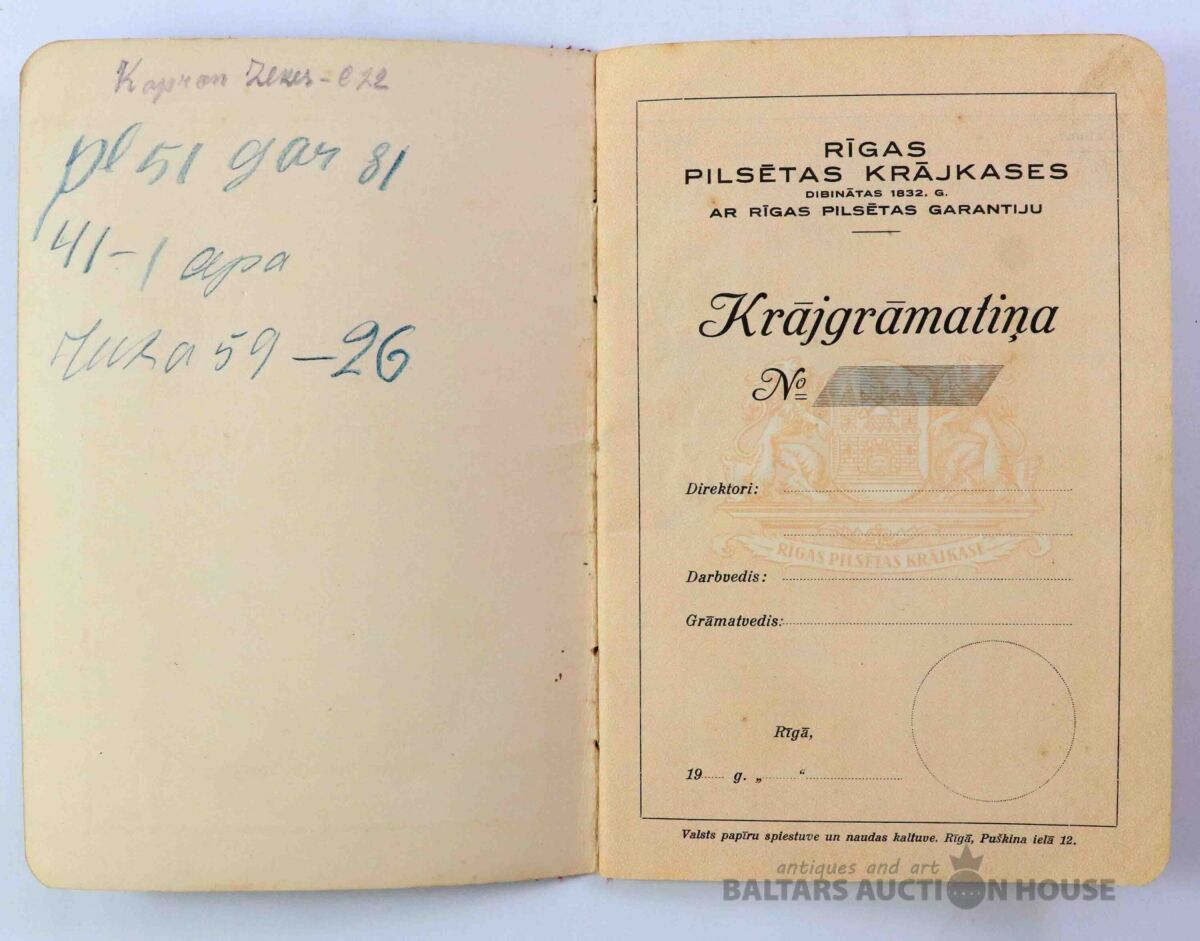 Kapron
pl 51 gar 81
41-1 apa
59 - 26
RĪGAS
PILSĒTAS KRĀJKASES
DIBINĀTAS 1832. G.
AR RĪGAS PILSĒTAS GARANTIJU
Krājgrāmatiņa
№
Direktori:
RĪGAS PILSĒTAS KRĀJKASE
Darbvedis:
Grāmatvedis:
Rīgā,
19 g. „ “
Valsts papīru spiestuve un naudas kaltuve. Rīgā, Puškina ielā 12.
antiques and art
BALTARS AUCTION HOUSE